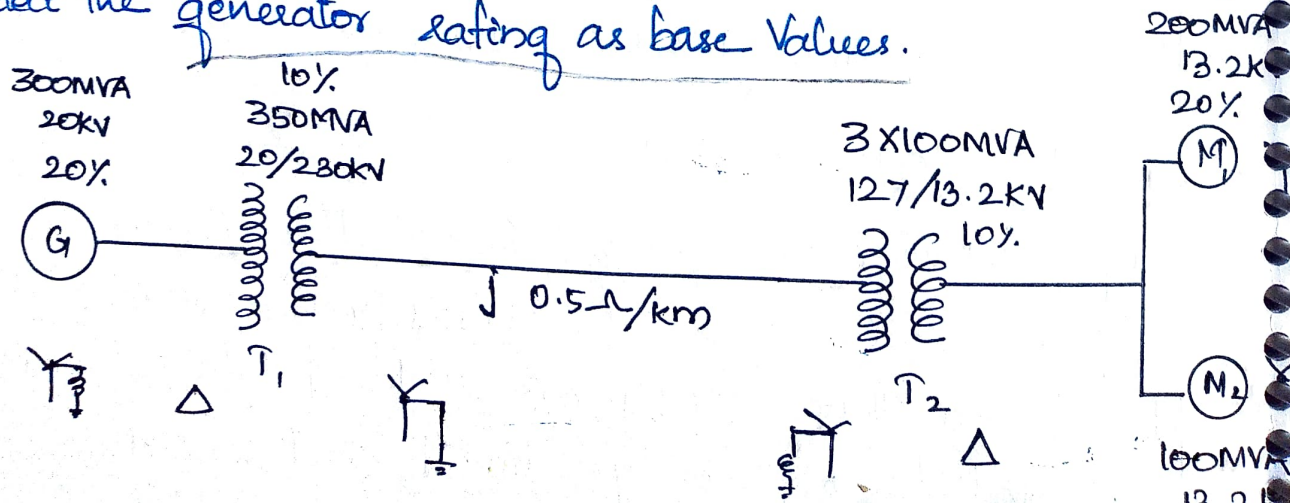 the generator rating as base Values.
300MVA
20KV
20%
G
10%
350MVA
20/230KV
T1
j 0.5Ω/km
3X100MVA
127/13.2KV
10%
T2
200MVA
13.2K
20%
M1
M2
100MVA